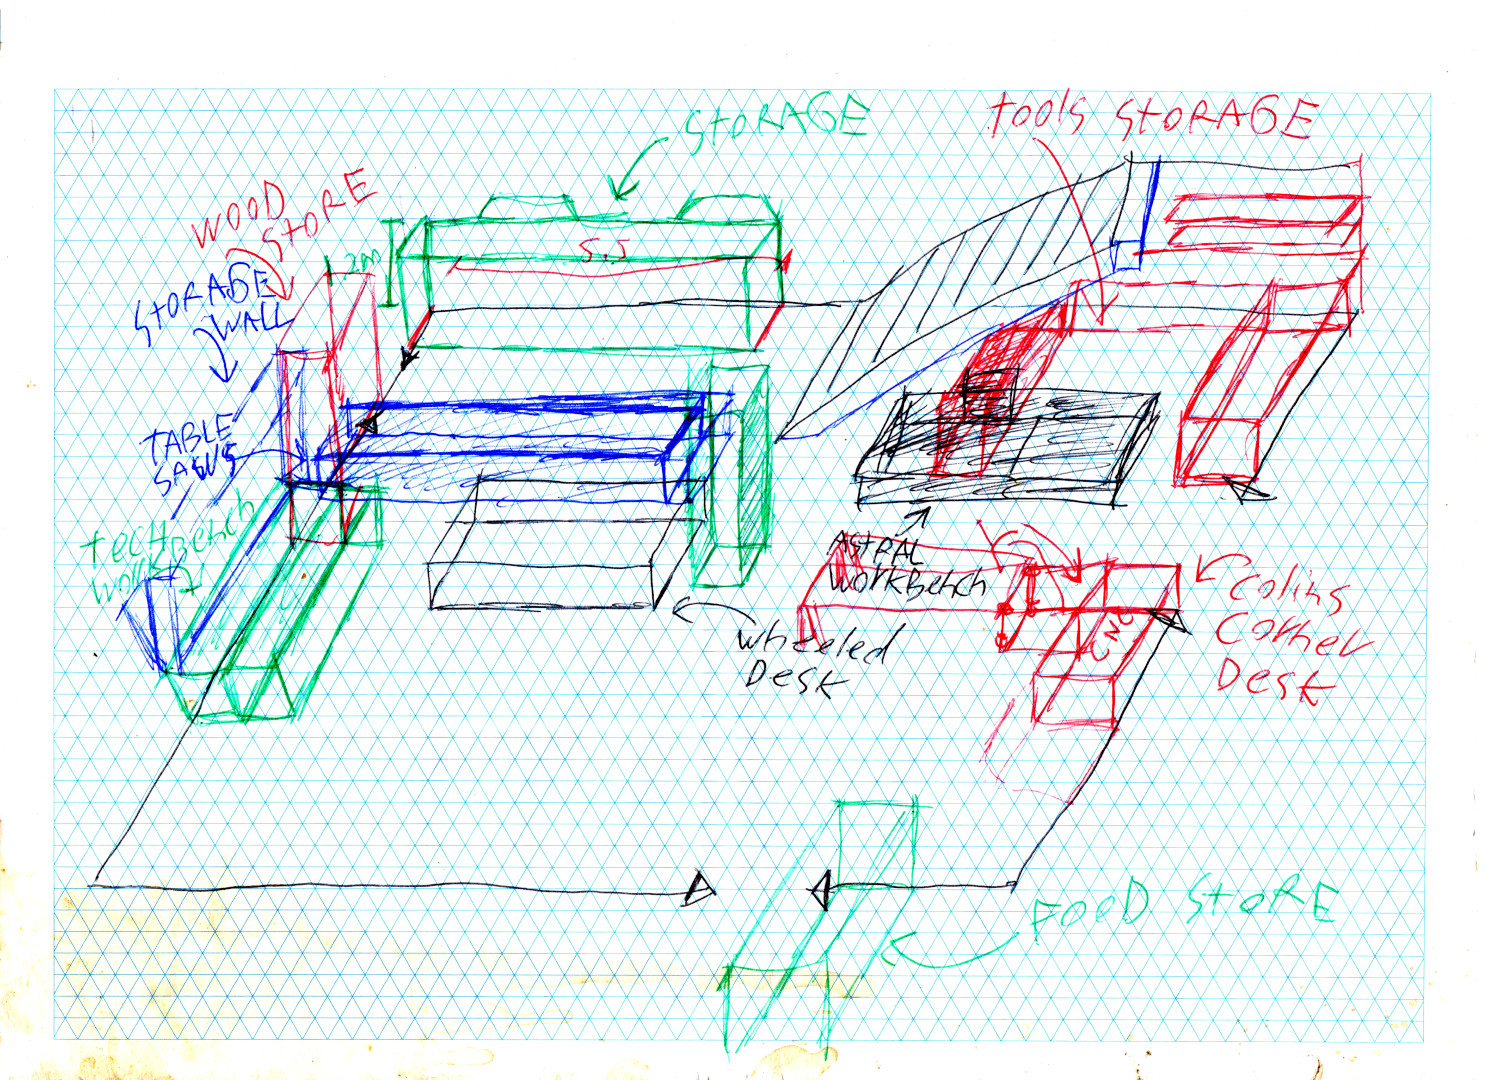 STORAGE
tools STORAGE
WOOD
STORE
2M
5.5
STORAGE
WALL
TABLE
SAWS
techbench
work
ASTRAL
WorkBench
wheeled
Desk
CNC
Colins
Corner
Desk
FOOD STORE